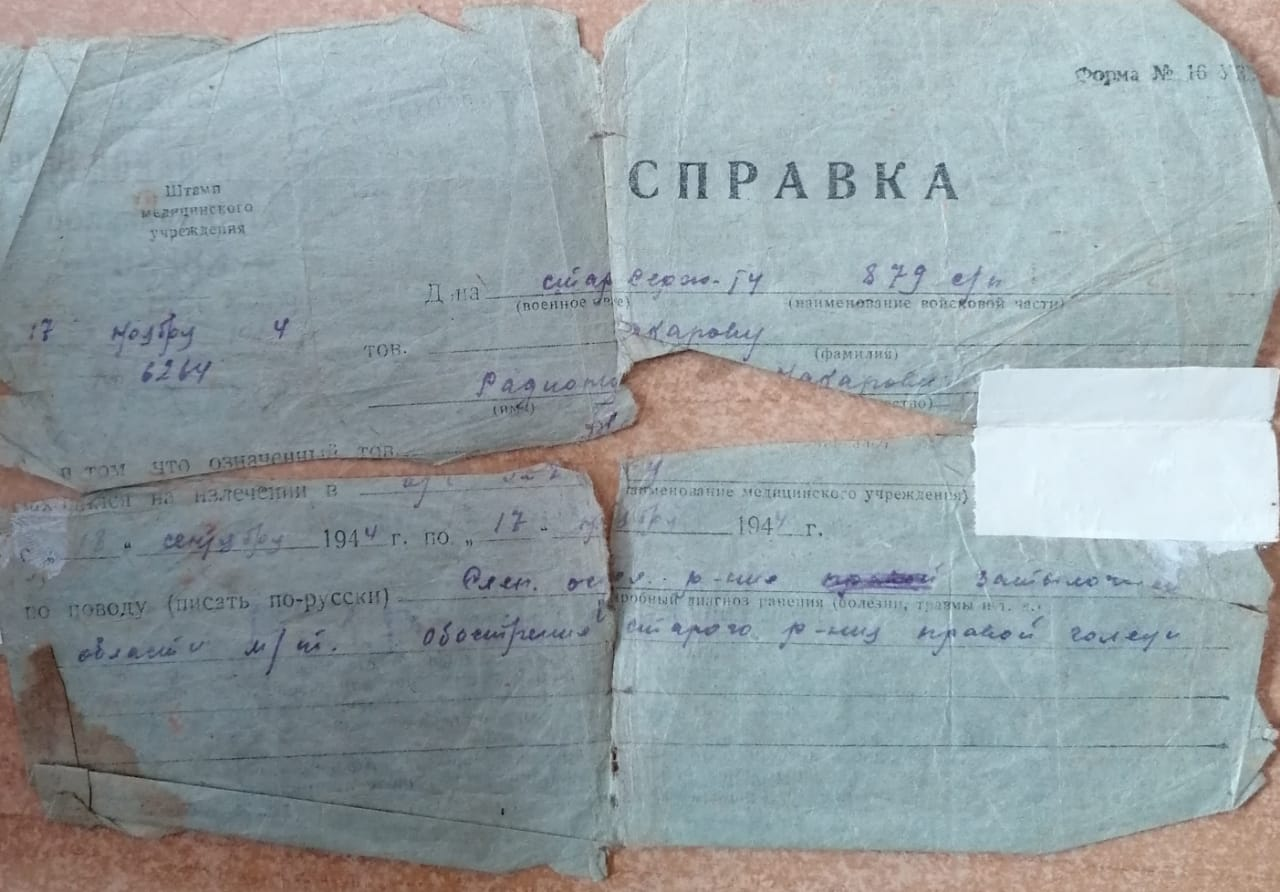 Форма № 16
СПРАВКА
Штамп
медицинского
учреждения
Дана стар. серж-ту 879 с/п
(военное зва е) (наименование войсковой части)
17 ноября 4
тов. акарову
(фамилия)
6264
(имя) ство)
в том что означенный тов.
на излечении в
аименование медицинского учреждения)
с „18 " сентября 1944 г. по „17 " ноября 1944 г.
по поводу (писать по-русски) р-ние затылочной
робный диагноз ранения (болезни, травмы и т. д.)
области м/т. Обострения старого р-ния правой голени